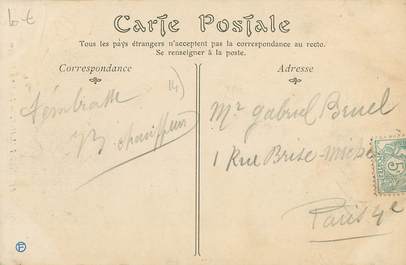 6 €
Carte Postale
Tous les pays étrangers n'acceptent pas la correspondance au recto.
Se renseigner à la poste.
Correspondance
Adresse
14
Mr Gabriel Bruel
1 Rue Brise-miche
Paris 4e
5